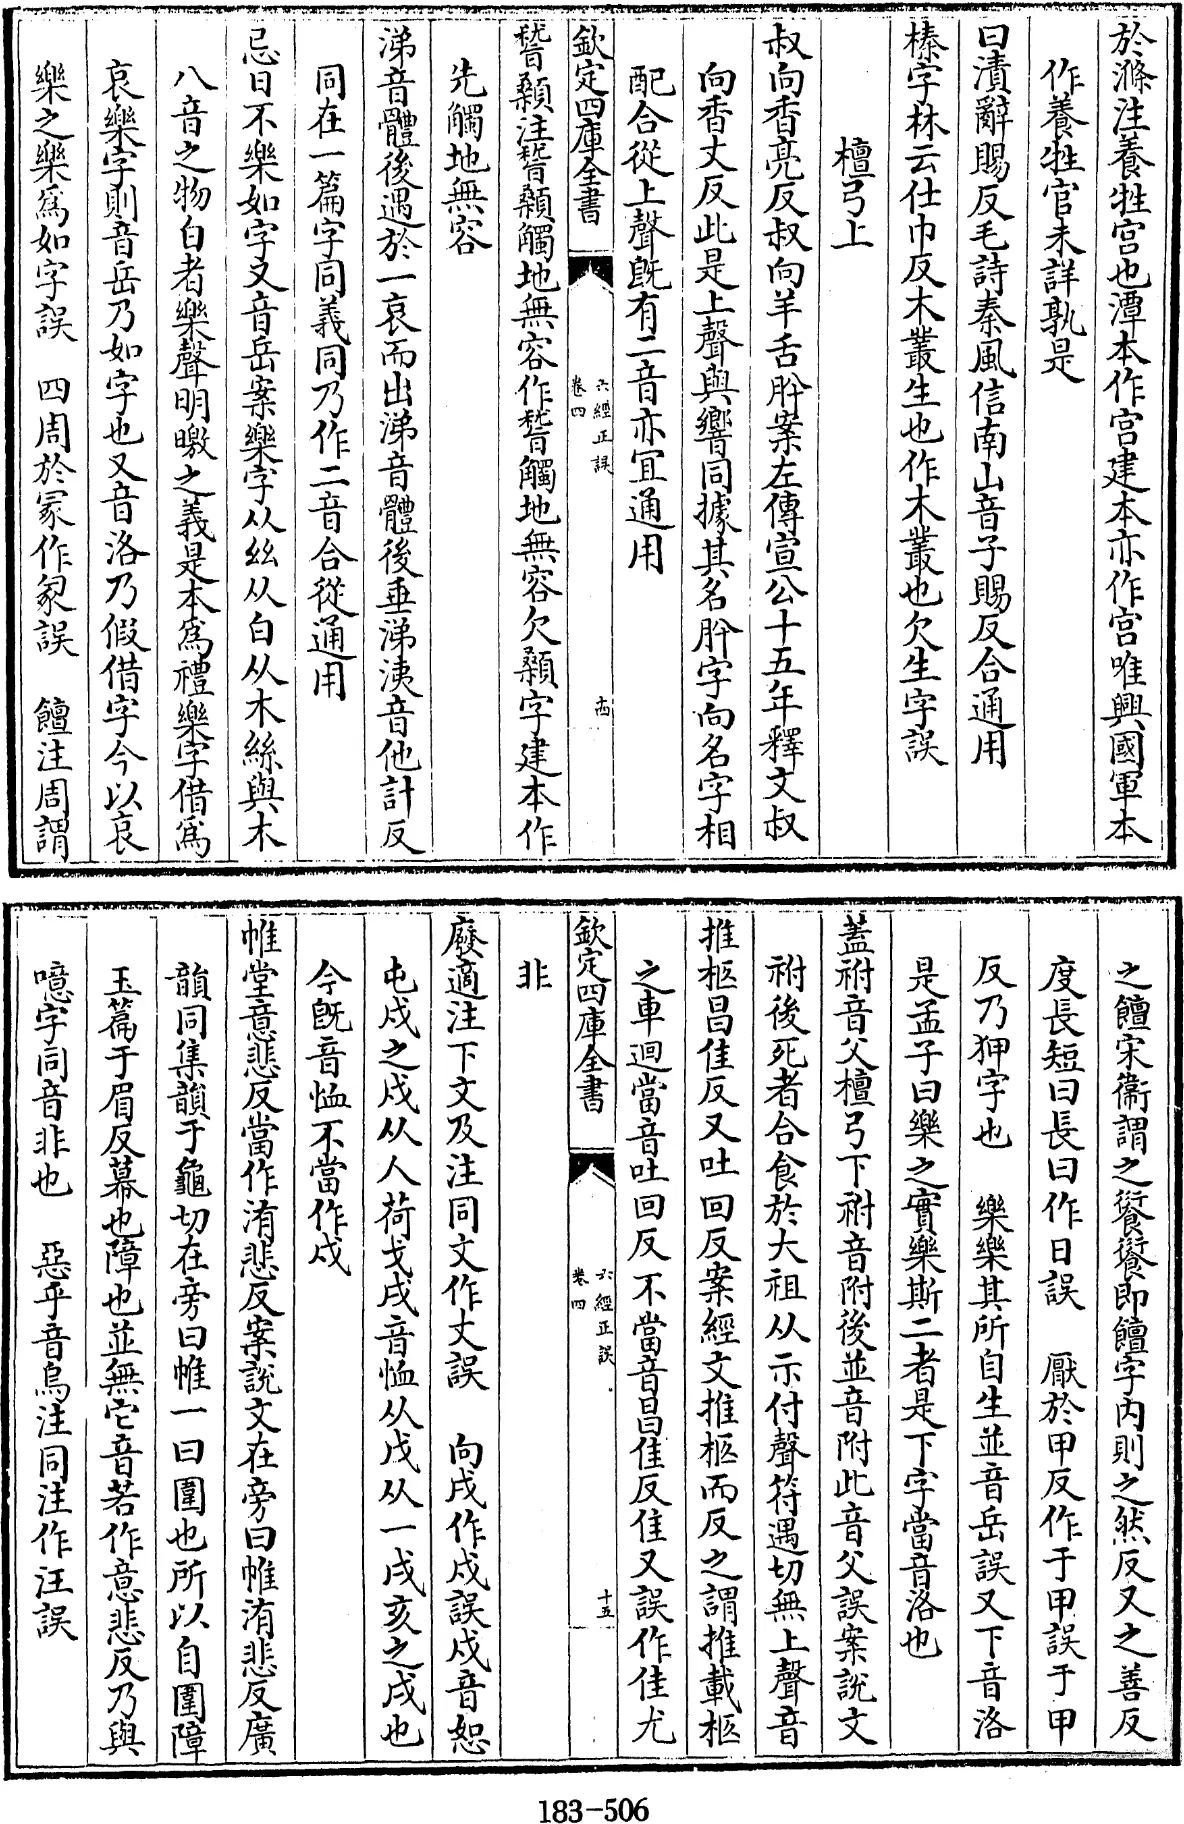 於滌注養牲宫也潭本作宫建本亦作宫唯興國軍本
作養牲官未詳孰是
曰漬辭賜反毛詩秦風信南山音子賜反合通用
榛字林云仕巾反木叢生也作木叢也欠生字誤
檀弓上
叔向香亮反叔向羊舌肸案左傳宣公十五年釋文叔
向香丈反此是上聲與響同據其名肸字向名字相
配合從上聲旣有二音亦宜通用
欽定四庫全書
六經正誤
卷四
十四
稽顙注稽顙觸地無容作稽觸地無容欠顙字建本作
先觸地無容
涕音體後遇於一哀而出涕音體後垂涕洟音他計反
同在一篇字同義同乃作二音合從通用
忌日不樂如字又音岳案樂字从絲从白从木絲與木
八音之物白者樂聲明曒之義是本爲禮樂字借爲
哀樂字則音岳乃如字也又音洛乃假借字今以哀
樂之樂爲如字誤 四周於冡作冢誤 饘注周謂
之饘宋衞謂之餰餰即饘字内則之然反又之善反
度長短曰長曰作日誤 厭於甲反作于甲誤于甲
反乃狎字也 樂樂其所自生並音岳誤又下音洛
是孟子曰樂之實樂斯二者是下字當音洛也
蓋祔音父檀弓下祔音附後並音附此音父誤案說文
祔後死者合食於大祖从示付聲符遇切無上聲音
推柩昌隹反又吐回反案經文推柩而反之謂推載柩
之車迴當音吐回反不當音昌隹反隹又誤作佳尤
欽定四庫全書
六經正誤
卷四
十五
非
廢適注下文及注同文作丈誤 向戌作戍誤戍音恕
屯戍之戍从人荷戈戌音恤从戊从一戌亥之戌也
今旣音恤不當作戍
帷堂意悲反當作洧悲反案說文在旁曰帷洧悲反廣
韻同集韻于龜切在旁曰帷一曰圍也所以自圍障
玉篇于眉反幕也障也並無它音若作意悲反乃與
噫字同音非也 惡乎音烏注同注作汪誤
183-506